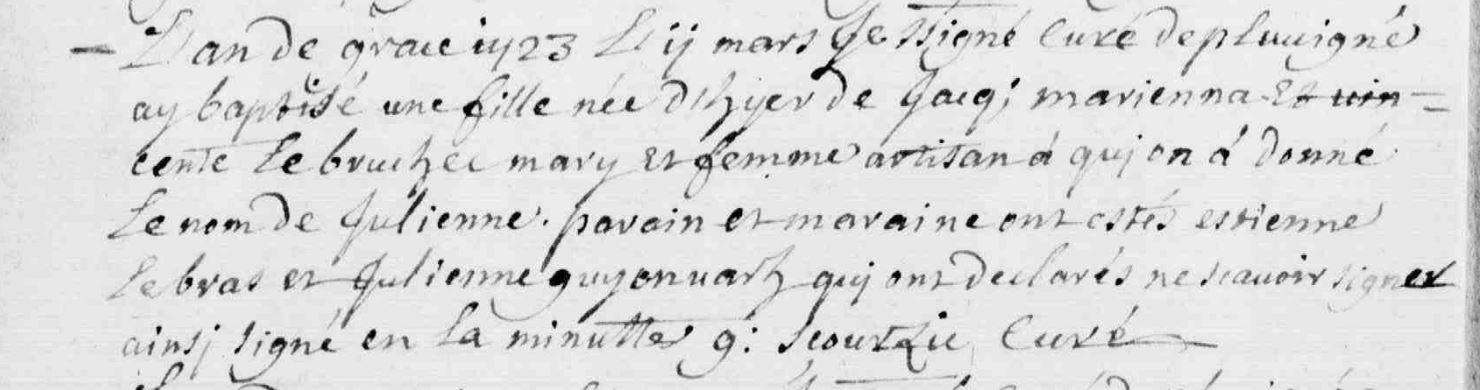 L'an de grace 1723 Le ij mars Je ssigné Curé de pluuigné
ay baptisé une fille née d'hyer de Jacq; marienna Et vin=
cente Le bruchec mary et femme artisan á quj on á donné
Le nom de Julienne. parain et maraine ont estés estienne
Le bras et Julienne guyonuarh quj ont declarés ne scauoir signer
ainsj signé en La minutte g: Curé